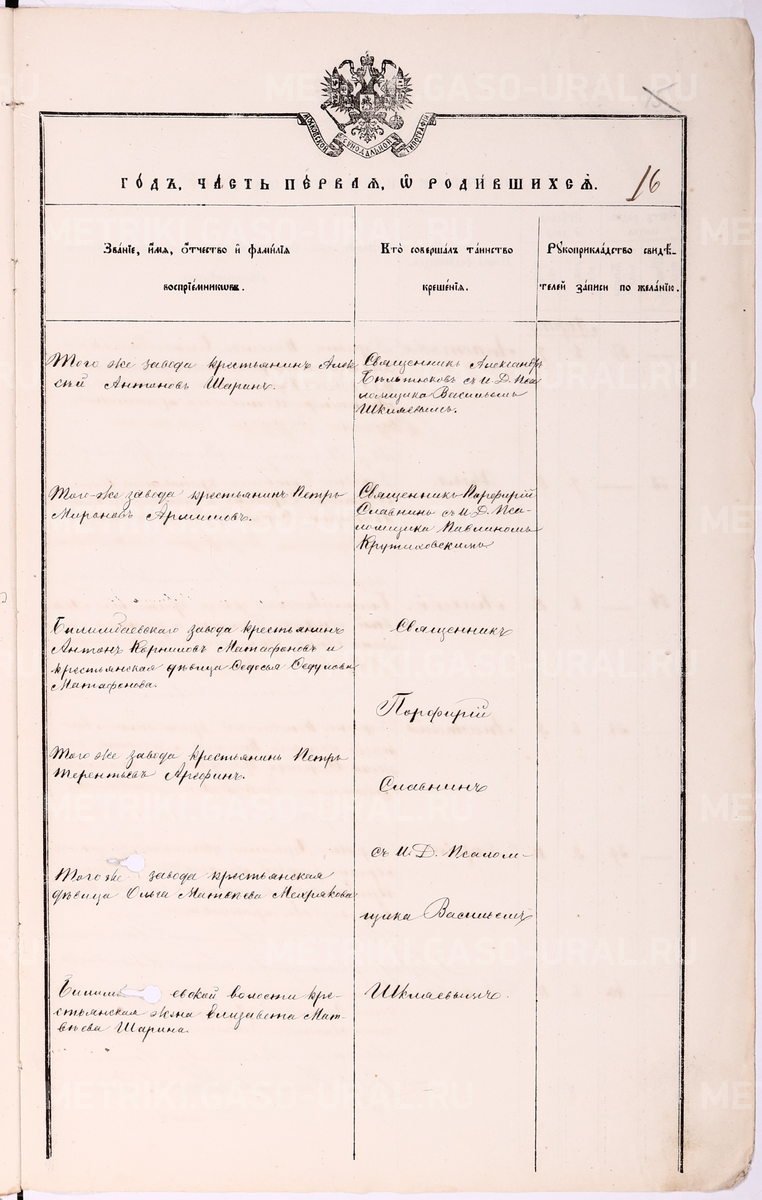 15
МОСКОВСКОЙ СИНОДАЛЬНОЙ ТИПОГРАФІИ
ГОДЪ, ЧАСТЬ ПЕРВАЯ, Ѡ РОДИВШИХСЯ.
16
Званіе, имя, отчество и фамилія
воспріемниковъ.
Кто совершалъ таинство
крещенія.
Рукоприкладство свидѣ-
телей записи по желанію.
Того же завода крестьянинъ Алек-
сѣй Антоновъ Шаринъ.
Священникъ Александръ
Бѣльтюковъ съ И. Д. Пса-
ломщика Васильемъ
Шкляевымъ.
Того-же завода крестьянинъ Петръ
Мироновъ
Священникъ Порфирій
Славнинъ съ И. Д. Пса-
ломщика Павлиномъ
Крутиховскимъ
Билимбаевскаго завода крестьянинъ
Антонъ Корниловъ Матафоновъ и
крестьянская дѣвица Ѳедосья Ѳедулова
Матафонова.
Священникъ
Порфирій
Того же завода крестьянинъ Петръ
Терентьевъ Арефинъ.
Славнинъ
съ И. Д. Псалом-
Того же завода крестьянская
дѣвица Ольга Матвѣева Мехрякова
щика Васильемъ
Билимб евской волости кре-
стьянская жена Елизавета Мат-
вѣева Шарина.
Шкляевымъ.
METRIKI.GASO-URAL.RU